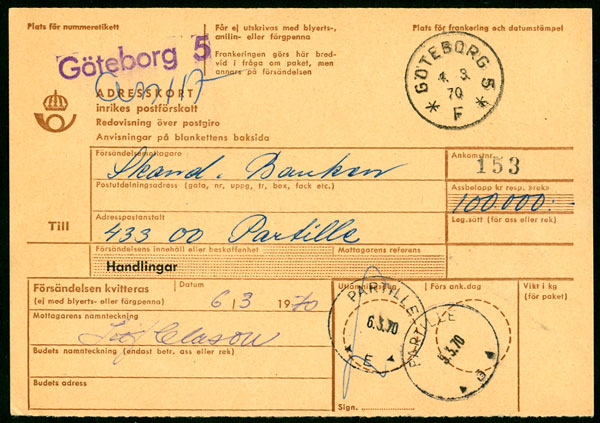 Plats för nummeretikett
Får ej utskrivas med blyerts-,
anilin- eller färgpenna
Frankeringen görs här bred-
vid i fråga om paket, men
annars på försändelsen
Plats för frankering och datumstämpel
Göteborg 5
GÖTEBORG 5
4. 3.
70
* F *
ADRESSKORT
inrikes postförskott
Redovisning över postgiro
Anvisningar på blankettens baksida
Försändelsemottagare
Skand. Banken
Ankomstnr
153
Postutdelningsadress (gata, nr, uppg, tr, box, fack etc.)
Assbelopp kr resp. öre
100.000:-
Till
Adresspostanstalt
433 00 Partille
Leg.sätt (för ass eller rek)
Försändelsens innehåll eller beskaffenhet
Mottagarens referens
Handlingar
Försändelsen kvitteras
(ej med blyerts- eller färgpenna)
Datum
6/3 1970
Utlämningsdag
Förs ank.dag
Vikt i kg
(för paket)
Mottagarens namnteckning
Clason
Budets namnteckning (endast betr. ass eller rek)
Budets adress
PARTILLE
6.3.70
E
PARTILLE
9.3.70
Sign.